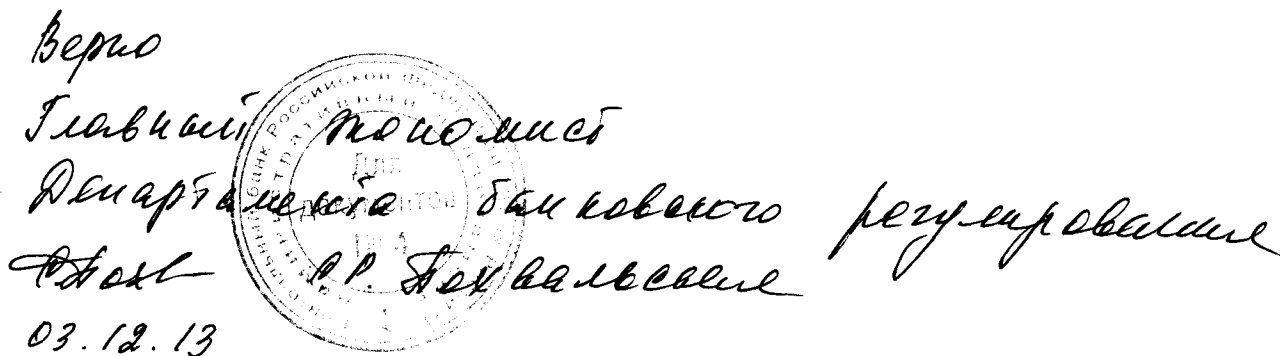 Верно
Главный экономист
Департамента банковского регулирования
Р.Р. Похвальская
03.12.13
Для
документов